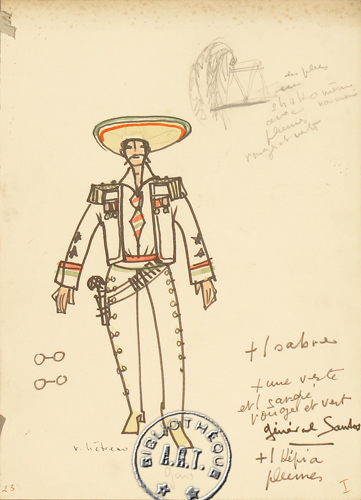 en plus
shako même
avec
plumes
rouge et vert
+ 1 sabre
+ une veste
et 1 sangle
rouge et vert
général Santos
+ 1 képi a
plumes
BIBLIOTHÈQUE
A.R.T.
23
I